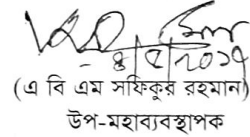 (এ বি এম সফিকুর রহমান)
উপ-মহাব্যবস্থাপক